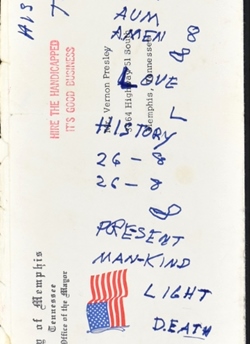 HIS
T
HIRE THE HANDICAPPED
IT'S GOOD BUSINESS
y of Memphis
Tennessee
Office of the Mayor
Vernon Presley
64 Highway 51 South
Memphis, Tennessee
AUM
AMEN
LOVE
L
HISTORY
26 - 8
26 - 8
8
PRESENT
MAN-KIND
LIGHT
DEATH